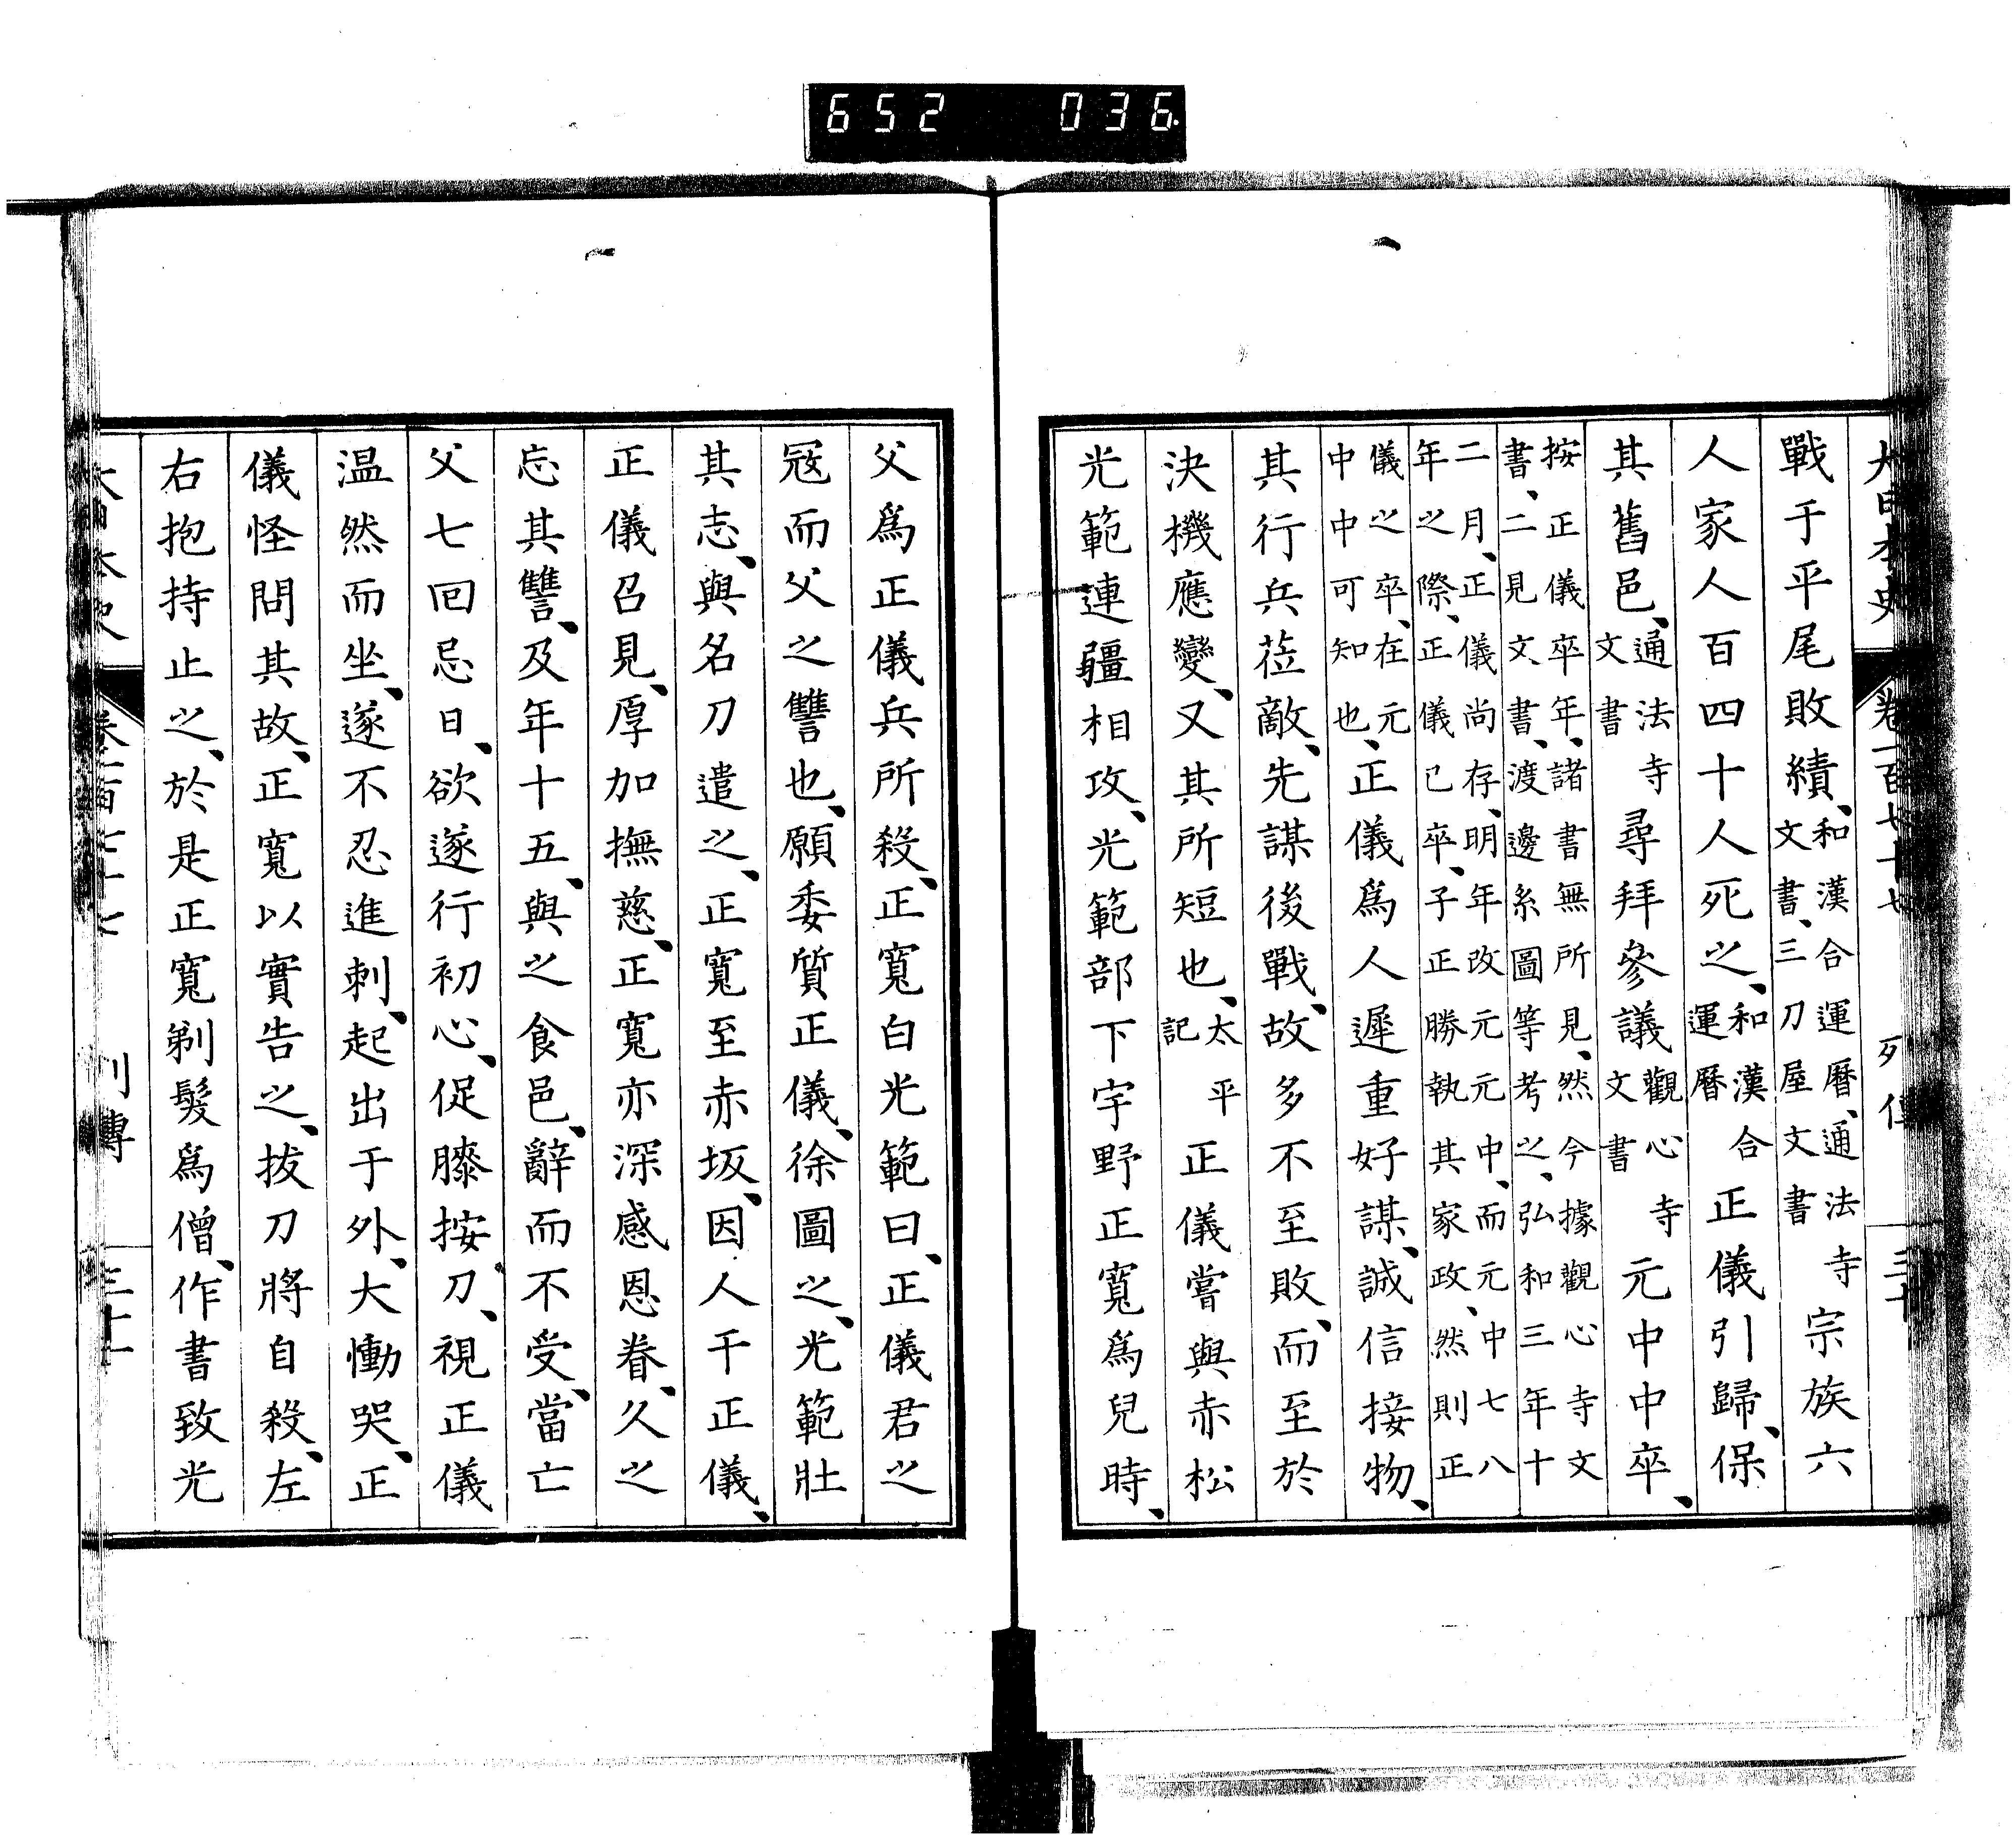 652 036
大日本史 卷一百七十七 列傳 三十
戰于平尾敗績、和漢合運曆、通法寺文書、三刀屋文書宗族六
人家人百四十人死之、和漢合運曆正儀引歸、保
其舊邑、通法寺文書尋拜參議觀心寺文書元中中卒、
按正儀卒年、諸書無所見、然今據觀心寺文
書、二見文書、渡邊系圖等考之、弘和三年十
二月、正儀尚存、明年改元元中、而元中七八
年之際、正儀已卒、子正勝執其家政、然則正
儀之卒、在元
中中可知也、正儀爲人遲重好謀、誠信接物、
其行兵莅敵、先謀後戰、故多不至敗、而至於
決機應變、又其所短也、太平記正儀嘗與赤松
光範連疆相攻、光範部下宇野正寬爲兒時、
父爲正儀兵所殺、正寬白光範曰、正儀君之
冦而父之讐也、願委質正儀、徐圖之、光範壯
其志、與名刀遣之、正寬至赤坂、因人干正儀、
正儀召見、厚加撫慈、正寬亦深感恩眷、久之
忘其讐、及年十五、與之食邑、辭而不受、當亡
父七回忌日、欲遂行初心、促膝按刀、視正儀
温然而坐、遂不忍進刺、起出于外、大慟哭、正
儀怪問其故、正寬以實告之、拔刀將自殺、左
右抱持止之、於是正寬剃髮爲僧、作書致光
大日本史 卷一百七十七 列傳 三十一